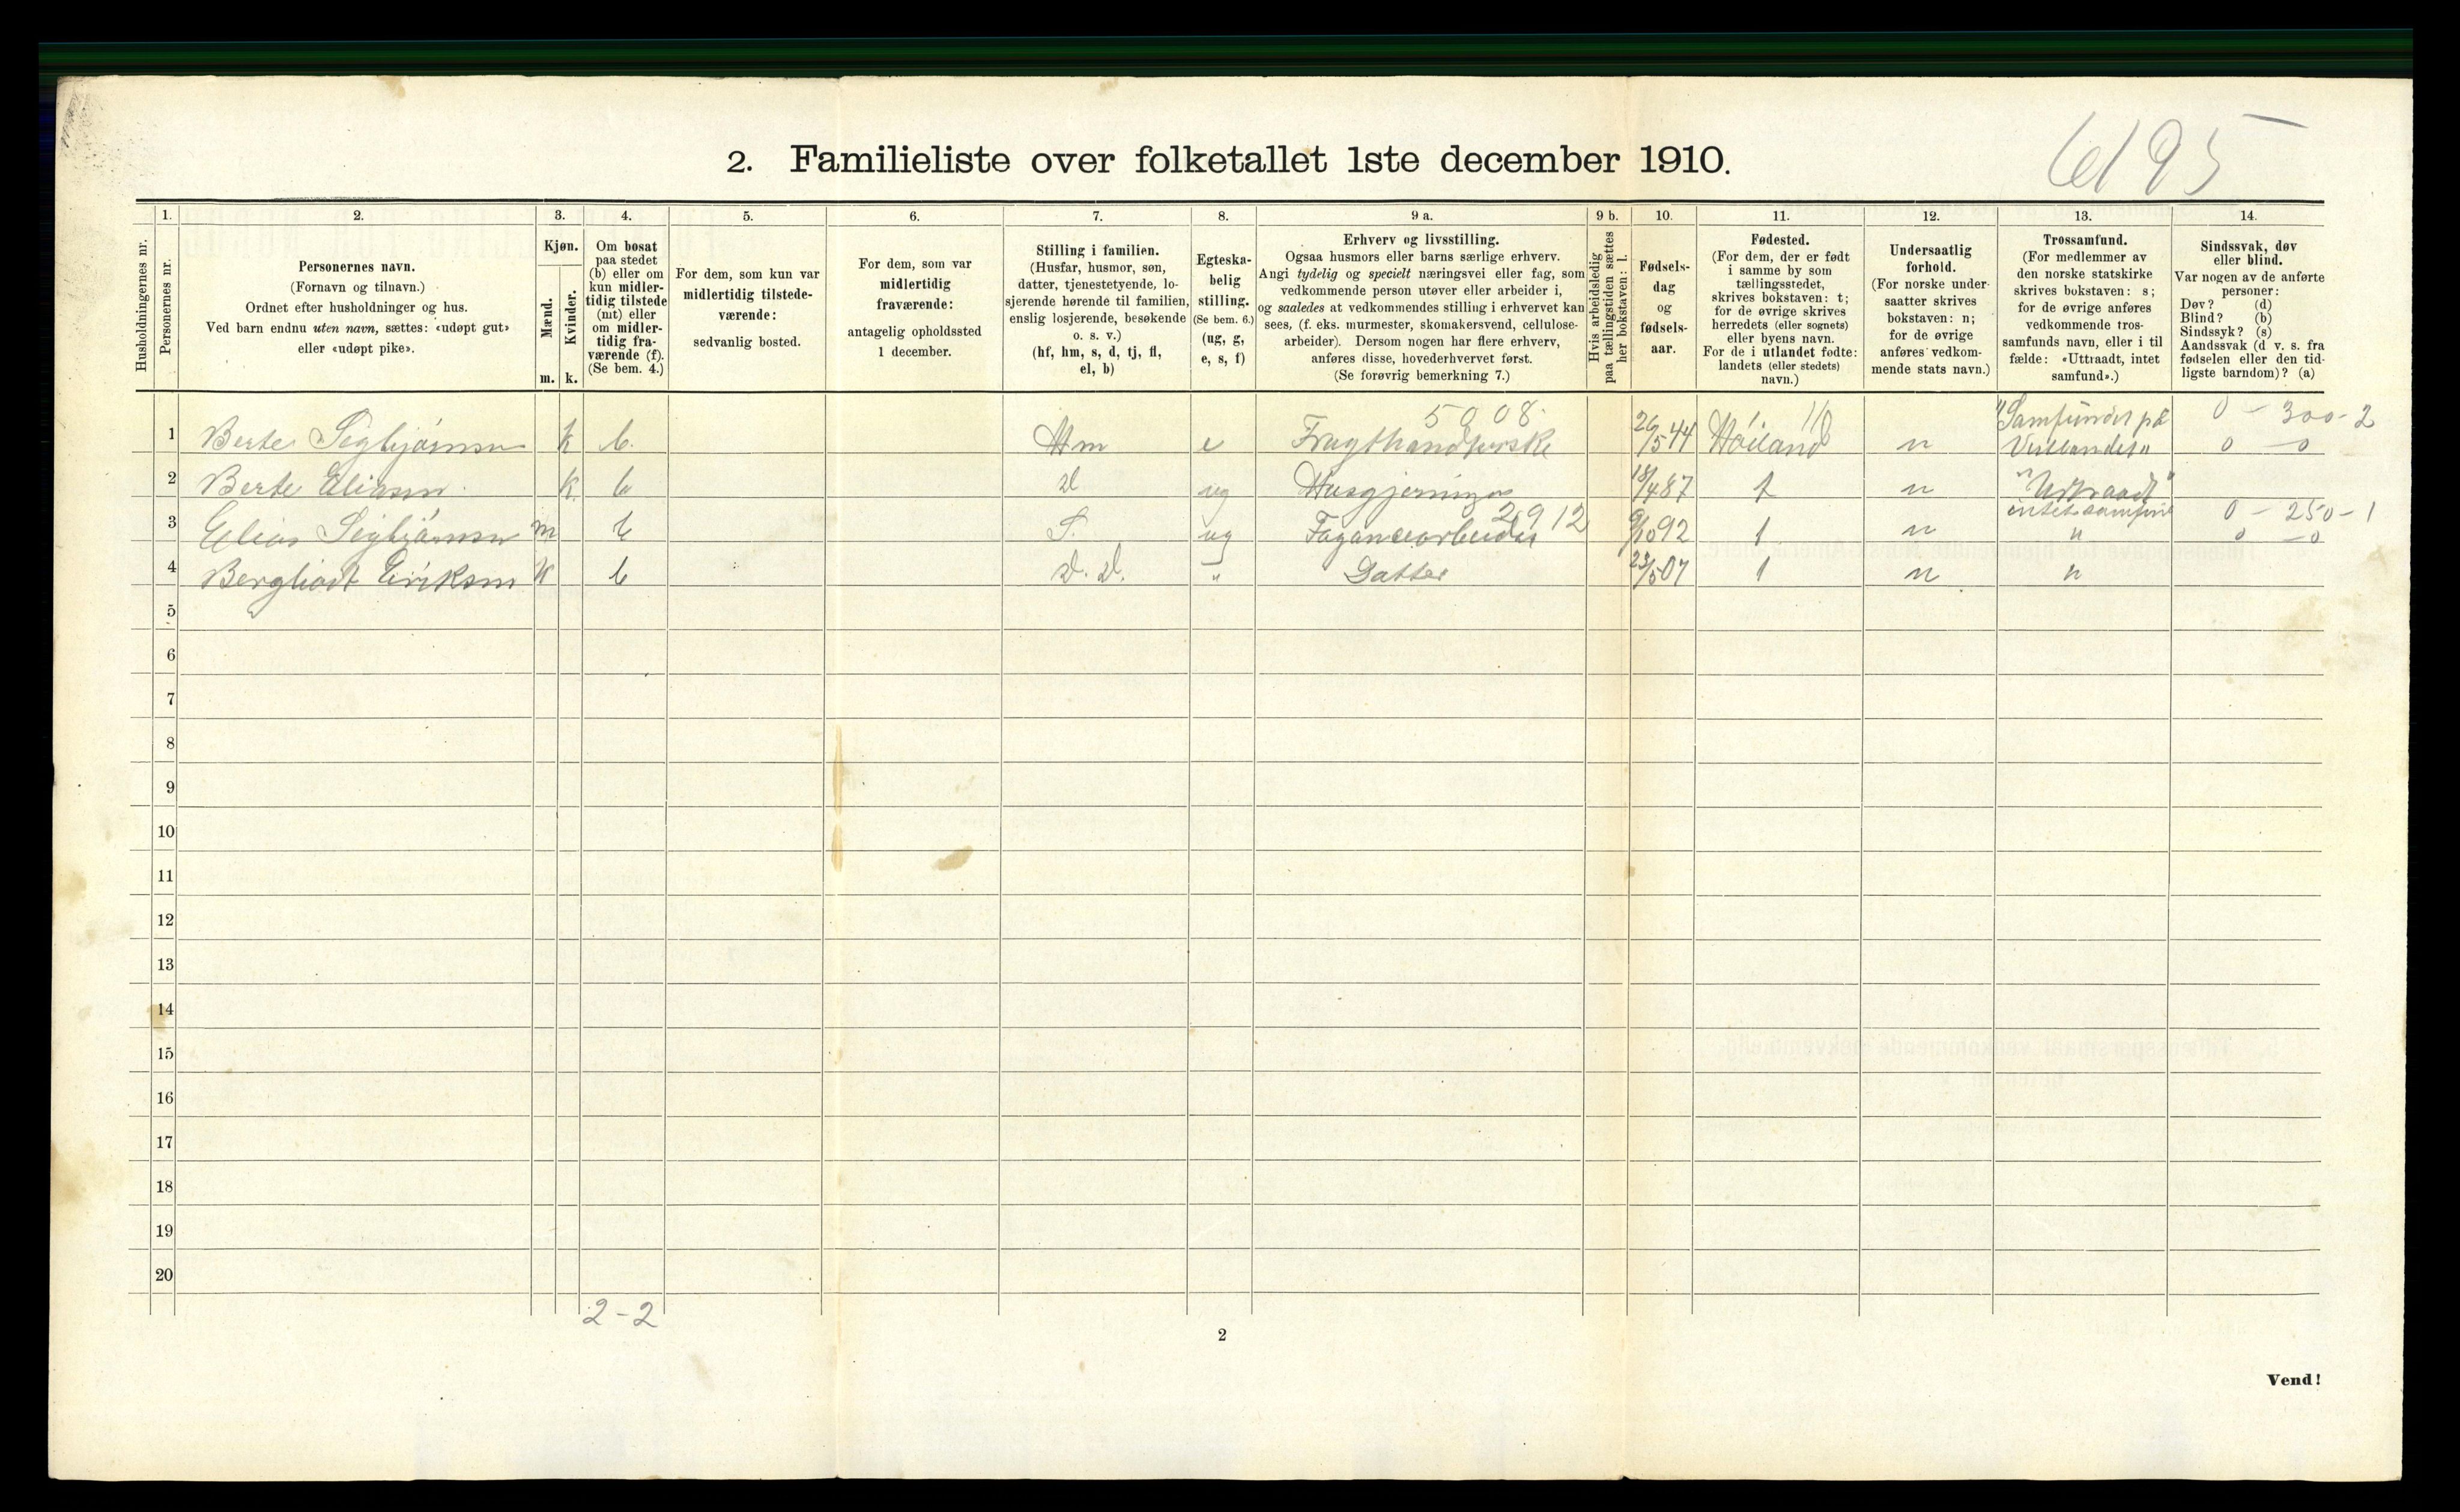 6195
2. Familieliste over folketallet 1ste december 1910.
Husholdningernes nr.
1.
Personernes nr.
2.
Personernes navn.
(Fornavn og tilnavn.)
Ordnet efter husholdninger og hus.
Ved barn endnu uten navn, sættes: «udøpt gut»
eller «udøpt pike».
3.
Kjøn.
Mænd.
Kvinder.
m. k.
4.
Om bosat
paa stedet
(b) eller om
kun midler-
tidig tilstede
(mt) eller
om midler-
tidig fra-
værende (f).
(Se bem. 4.)
5.
For dem, som kun var
midlertidig tilstede-
værende:
sedvanlig bosted.
6.
For dem, som var
midlertidig
fraværende:
antagelig opholdssted
1 december.
7.
Stilling i familien.
(Husfar, husmor, søn,
datter, tjenestetyende, lo-
sjerende hørende til familien,
enslig losjerende, besøkende
o. s. v.)
(hf, hm, s, d, tj, fl,
el, b)
8.
Egteska-
belig
stilling.
(Se bem. 6.)
(ug, g,
e, s, f)
9 a.
Erhverv og livsstilling.
Ogsaa husmors eller barns særlige erhverv.
Angi tydelig og specielt næringsvei eller fag, som
vedkommende person utøver eller arbeider i,
og saaledes at vedkommendes stilling i erhvervet kan
sees, (f. eks. murmester, skomakersvend, cellulose-
arbeider). Dersom nogen har flere erhverv,
anføres disse, hovederhvervet først.
(Se forøvrig bemerkning 7.)
9 b.
Hvis arbeidsledig
paa tællingstiden sættes
her bokstaven: l.
10.
Fødsels-
dag
og
fødsels-
aar.
11.
Fødested.
(For dem, der er født
i samme by som
tællingsstedet,
skrives bokstaven: t;
for de øvrige skrives
herredets (eller sognets)
eller byens navn.
For de i utlandet fødte:
landets (eller stedets)
navn.)
12.
Undersaatlig
forhold.
(For norske under-
saatter skrives
bokstaven: n;
for de øvrige
anføres vedkom-
mende stats navn.)
13.
Trossamfund.
(For medlemmer av
den norske statskirke
skrives bokstaven: s;
for de øvrige anføres
vedkommende tros-
samfunds navn, eller i til
fælde: «Uttraadt, intet
samfund».)
14.
Sindssvak, døv
eller blind.
Var nogen av de anførte
personer:
Døv? (d)
Blind? (b)
Sindssyk? (s)
Aandssvak (d v. s. fra
fødselen eller den tid-
ligste barndom)? (a)
5008. 110 "Samfundet på 0 - 300-2
1 Berte Sigbjørnsen k b. Hm e Frugthandlerske 26/5 44 Høiland n Vestlandet" 0 - 0
2 Berte Eliasen k b d ug Husgjerning 18/4 87 t n "Uttraadt"
2912 intet samfund 0 - 250-1
3 Elias Sigbjørnsen m b S. ug 9/10 92 t n " 0 - 0
4 Bergliodt Eriksen k b d. d. " Datter 23/5 07 t n "
5
6
7
8
9
10
11
12
13
14
15
16
17
18
19
20
2-2
2
Vend!